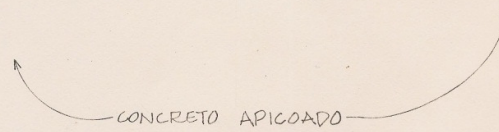 CONCRETO APICOADO